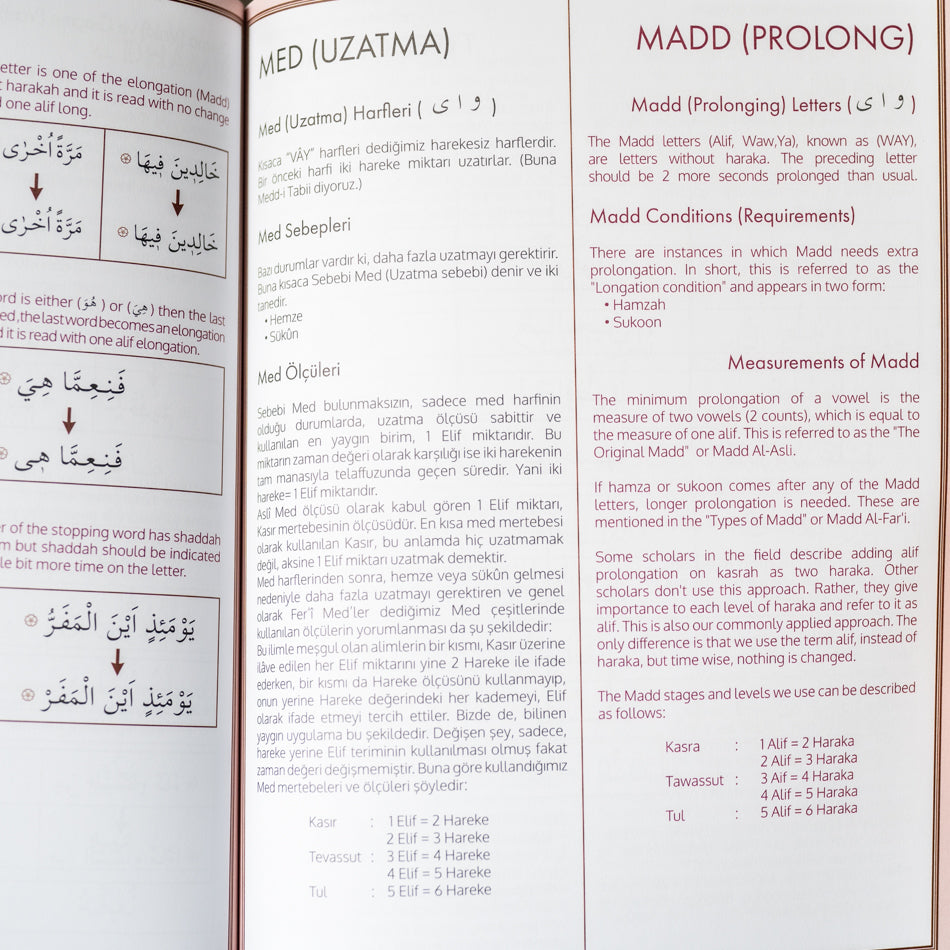 etter is one of the elongation (Madd)
t harakah and it is read with no change
d one alif long.
مَرَّةً اُخْرٰى
خَالِدٖينَ فٖيهَا
مَرَّةً اُخْرٰى
خَالِدٖينَ فٖيهَا
ord is either (هُوَ) or (هِيَ) then the last
ed, the last word becomes an elongation
d it is read with one alif elongation.
فَنِعِمَّا هِيَ
فَنِعِمَّا هٖى
er of the stopping word has shaddah
m but shaddah should be indicated
le bit more time on the letter.
يَوْمَئِذٍ اَيْنَ الْمَفَرُّ
يَوْمَئِذٍ اَيْنَ الْمَفَرْ
MED (UZATMA)
Med (Uzatma) Harfleri ( و ا ى )
Kısaca “VÂY” harfleri dediğimiz harekesiz harflerdir.
Bir önceki harfi iki hareke miktarı uzatırlar. (Buna
Medd-i Tabii diyoruz.)
Med Sebepleri
Bazı durumlar vardır ki, daha fazla uzatmayı gerektirir.
Buna kısaca Sebebi Med (Uzatma sebebi) denir ve iki
tanedir.
• Hemze
• Sükûn
Med Ölçüleri
Sebebi Med bulunmaksızın, sadece med harfinin
olduğu durumlarda, uzatma ölçüsü sabittir ve
kullanılan en yaygın birim, 1 Elif miktarıdır. Bu
miktarın zaman değeri olarak karşılığı ise iki harekenin
tam manasıyla telaffuzunda geçen süredir. Yani iki
hareke= 1 Elif miktarıdır.
Aslî Med ölçüsü olarak kabul gören 1 Elif miktarı,
Kasır mertebesinin ölçüsüdür. En kısa med mertebesi
olarak kullanılan Kasır, bu anlamda hiç uzatmamak
değil, aksine 1 Elif miktarı uzatmak demektir.
Med harflerinden sonra, hemze veya sükûn gelmesi
nedeniyle daha fazla uzatmayı gerektiren ve genel
olarak Fer'î Med'ler dediğimiz Med çeşitlerinde
kullanılan ölçülerin yorumlanması da şu şekildedir:
Bu ilimle meşgul olan alimlerin bir kısmı, Kasır üzerine
ilâve edilen her Elif miktarını yine 2 Hareke ile ifade
ederken, bir kısmı da Hareke ölçüsünü kullanmayıp,
onun yerine Hareke değerindeki her kademeyi, Elif
olarak ifade etmeyi tercih ettiler. Bizde de, bilinen
yaygın uygulama bu şekildedir. Değişen şey, sadece,
hareke yerine Elif teriminin kullanılması olmuş fakat
zaman değeri değişmemiştir. Buna göre kullandığımız
Med mertebeleri ve ölçüleri şöyledir:
Kasır : 1 Elif = 2 Hareke
2 Elif = 3 Hareke
Tevassut : 3 Elif = 4 Hareke
4 Elif = 5 Hareke
Tul : 5 Elif = 6 Hareke
MADD (PROLONG)
Madd (Prolonging) Letters ( و ا ى )
The Madd letters (Alif, Waw,Ya), known as (WAY),
are letters without haraka. The preceding letter
should be 2 more seconds prolonged than usual.
Madd Conditions (Requirements)
There are instances in which Madd needs extra
prolongation. In short, this is referred to as the
"Longation condition" and appears in two form:
• Hamzah
• Sukoon
Measurements of Madd
The minimum prolongation of a vowel is the
measure of two vowels (2 counts), which is equal to
the measure of one alif. This is referred to as the "The
Original Madd" or Madd Al-Asli.
If hamza or sukoon comes after any of the Madd
letters, longer prolongation is needed. These are
mentioned in the "Types of Madd" or Madd Al-Far'i.
Some scholars in the field describe adding alif
prolongation on kasrah as two haraka. Other
scholars don't use this approach. Rather, they give
importance to each level of haraka and refer to it as
alif. This is also our commonly applied approach. The
only difference is that we use the term alif, instead of
haraka, but time wise, nothing is changed.
The Madd stages and levels we use can be described
as follows:
Kasra : 1 Alif = 2 Haraka
2 Alif = 3 Haraka
Tawassut : 3 Aif = 4 Haraka
4 Alif = 5 Haraka
Tul : 5 Alif = 6 Haraka